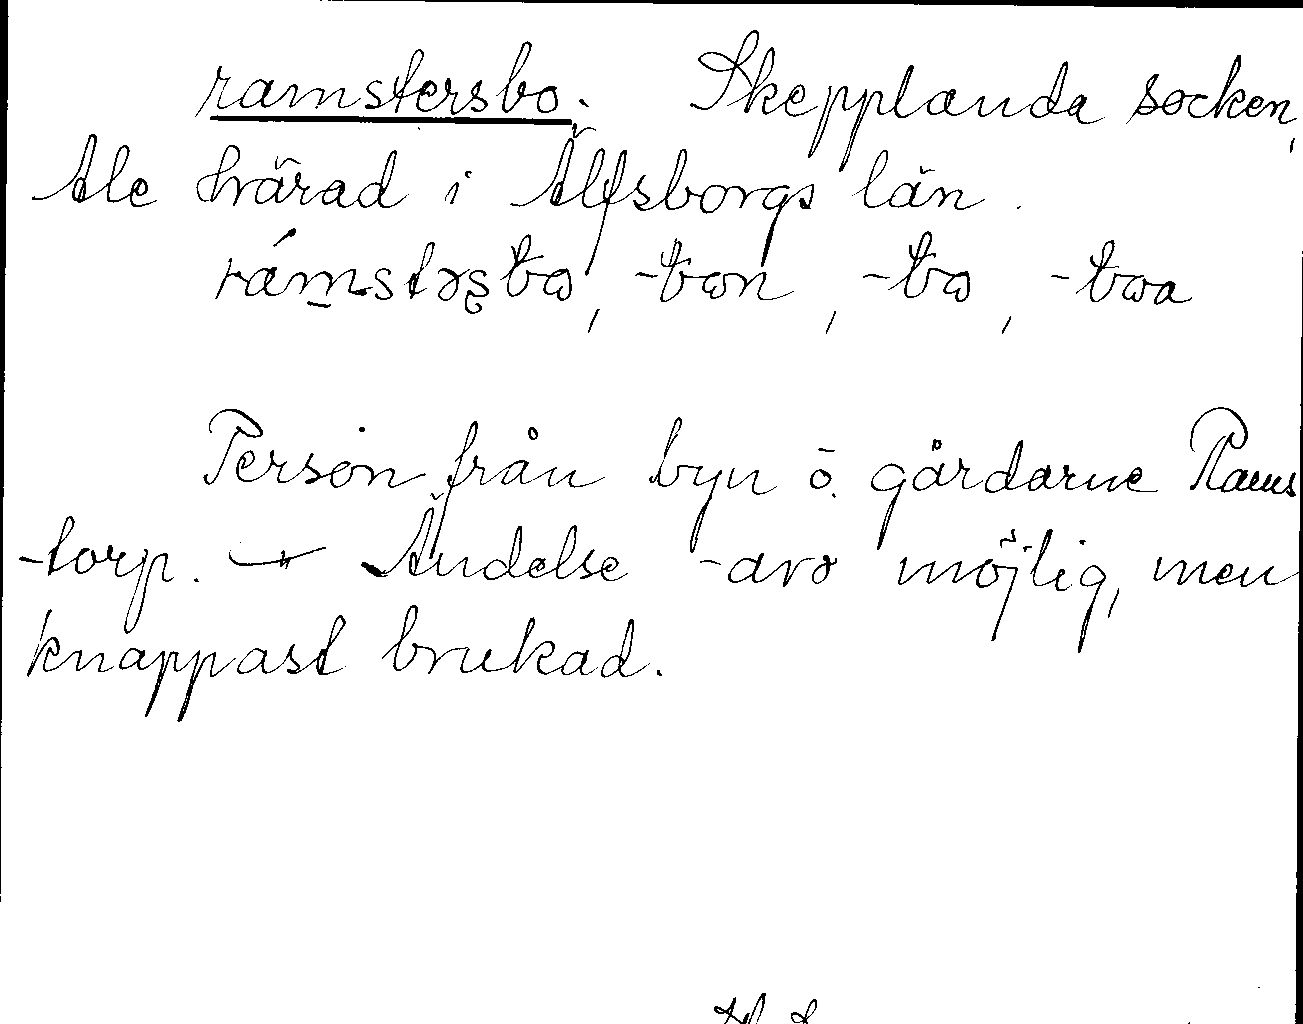 ramstersbo. Skepplanda socken,
Ale härad i Älfsborgs län.
-bon, -bo, -boa
Person från byn o. gårdarne Rams
-torp. — Ändelse möjlig, men
knappast brukad.